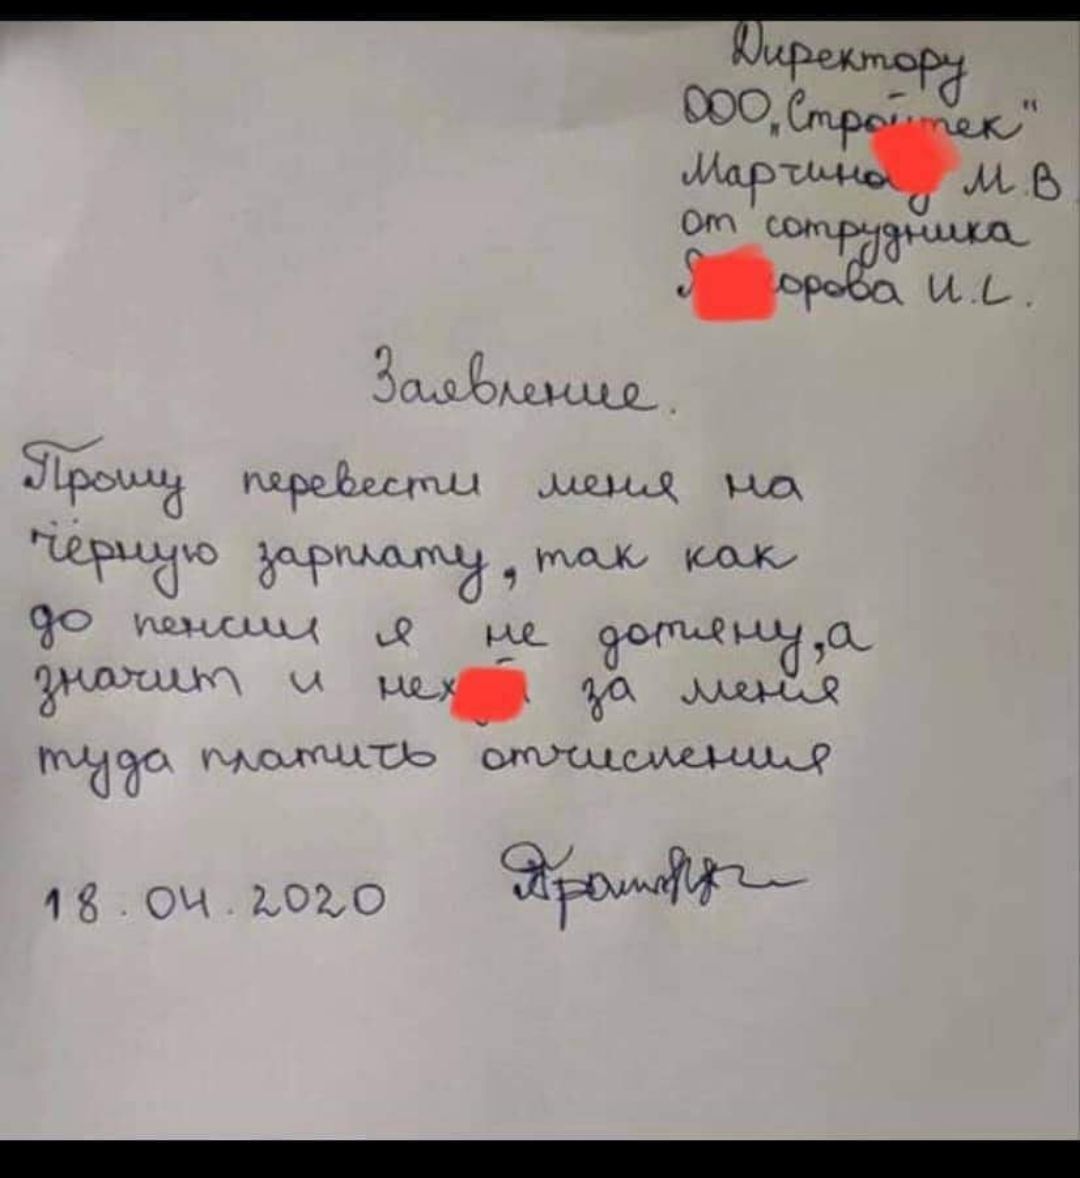 Директору
ООО „Стройтек"
М.В.
от сотрудника
И.С.
Заявление.
Прошу перевести меня на
чёрную зарплату, так как
до пенсии я не дотяну, а
значит и за меня
туда платить отчисления
18.04.2020